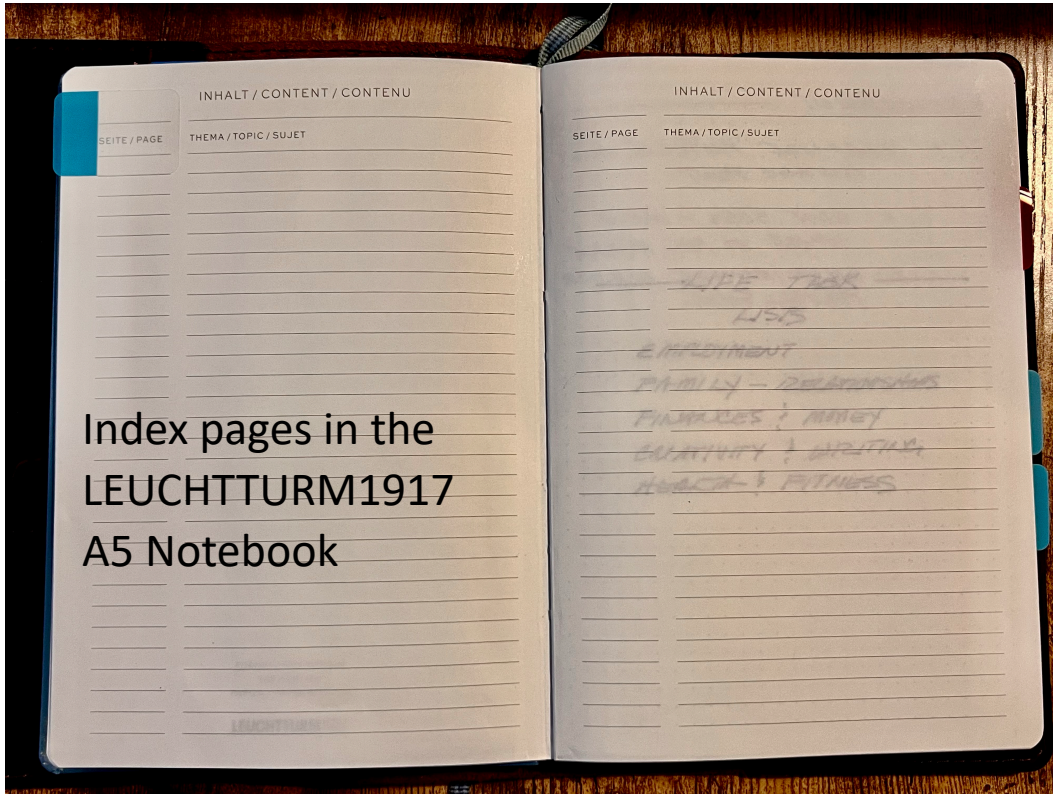 INHALT / CONTENT / CONTENU
SEITE / PAGE THEMA / TOPIC / SUJET
Index pages in the
LEUCHTTURM1917
A5 Notebook
LEUCHTTURM
INHALT / CONTENT / CONTENU
SEITE / PAGE THEMA / TOPIC / SUJET
LIFE TASK
LISTS
EMPLOYMENT
FAMILY – RELATIONSHIPS
FINANCES & MONEY
CREATIVITY & WRITING
HEALTH & FITNESS